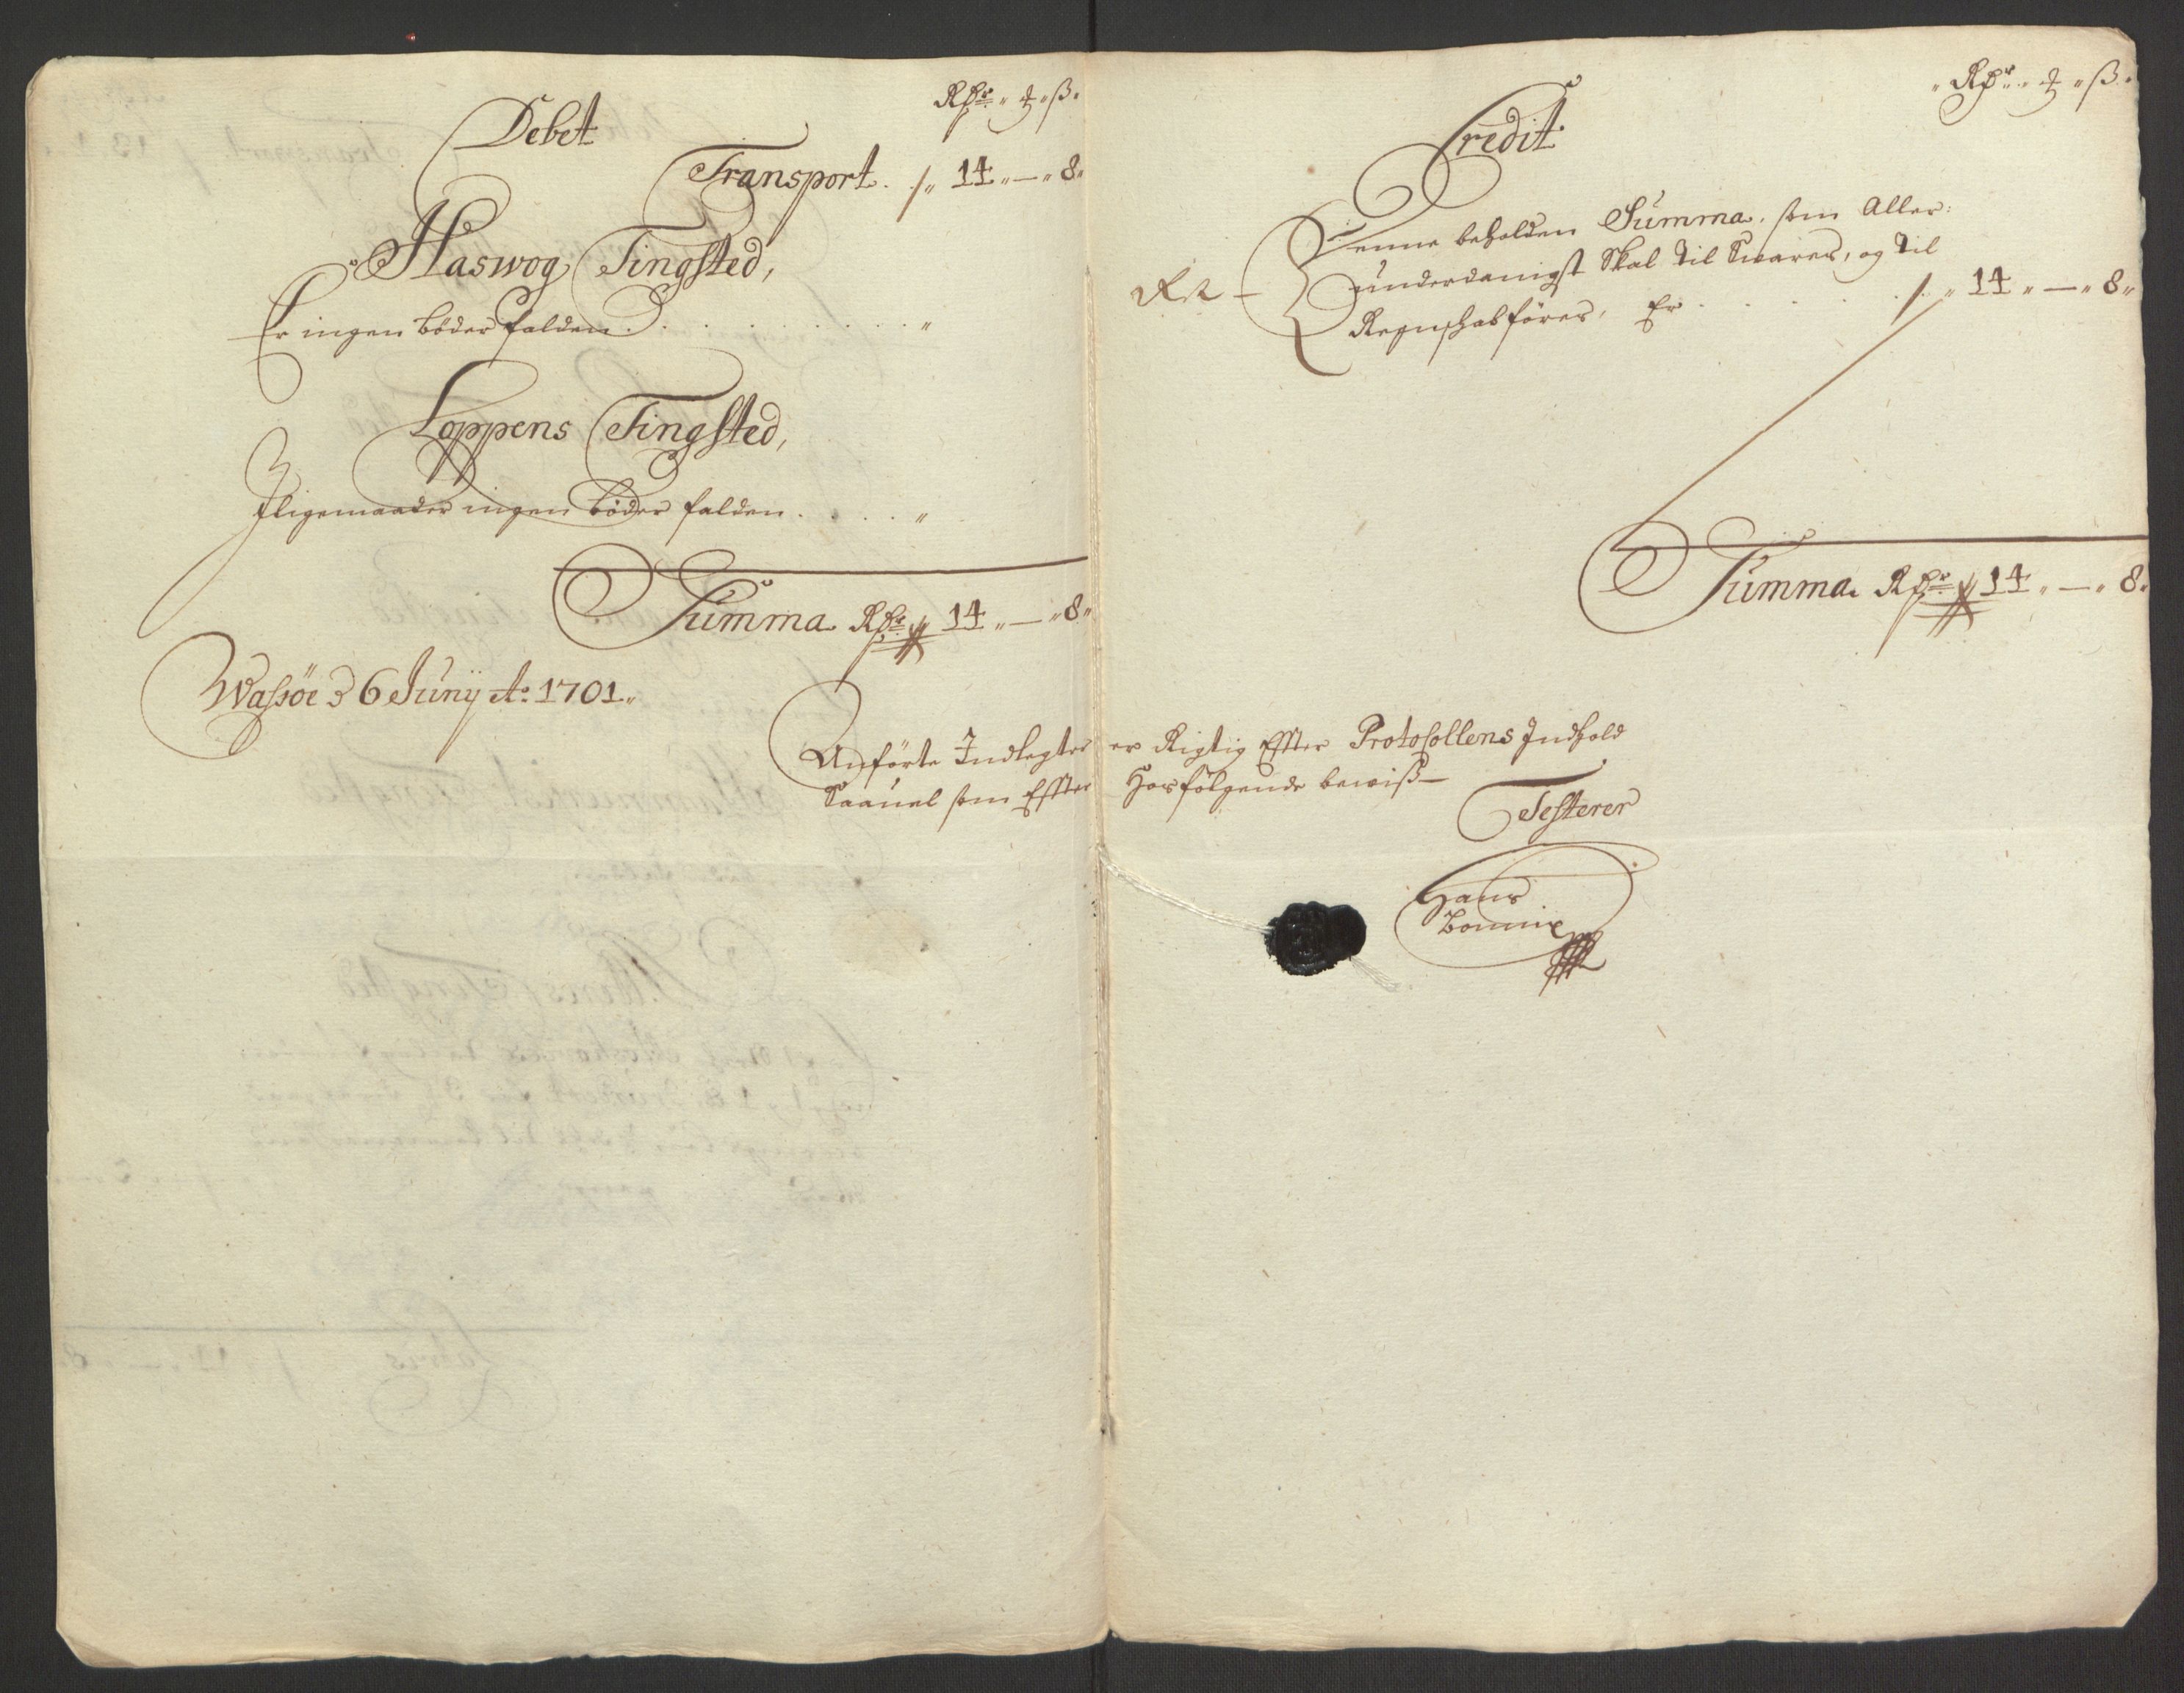 Debet
Rdr. ₰ ß.
Transport. /. 14 „ — „ 8 „
Haswog Tingsted,
Er ingen bøder falden . . . . . . . . . „
Loppens Tingsted,
Iligemaader ingen bøder falden . . . . „
Summa Rdr 14 „ — „ 8 „
Wassöe d 6 Junij Ao 1701.
Credit
Rdr. ₰ ß.
Denne beholden Summa, som Aller:
underdanigst skal til Swares, og til
Regnskabføres, Er . . . . . /. 14 „ — „ 8 „
Summa Rdr 14 „ — „ 8 „
Anførte Indtegter er Rigtig Effter Protocollens Indhold
Saauel som Effter Hosfølgende bewiß
Testerer
Hans